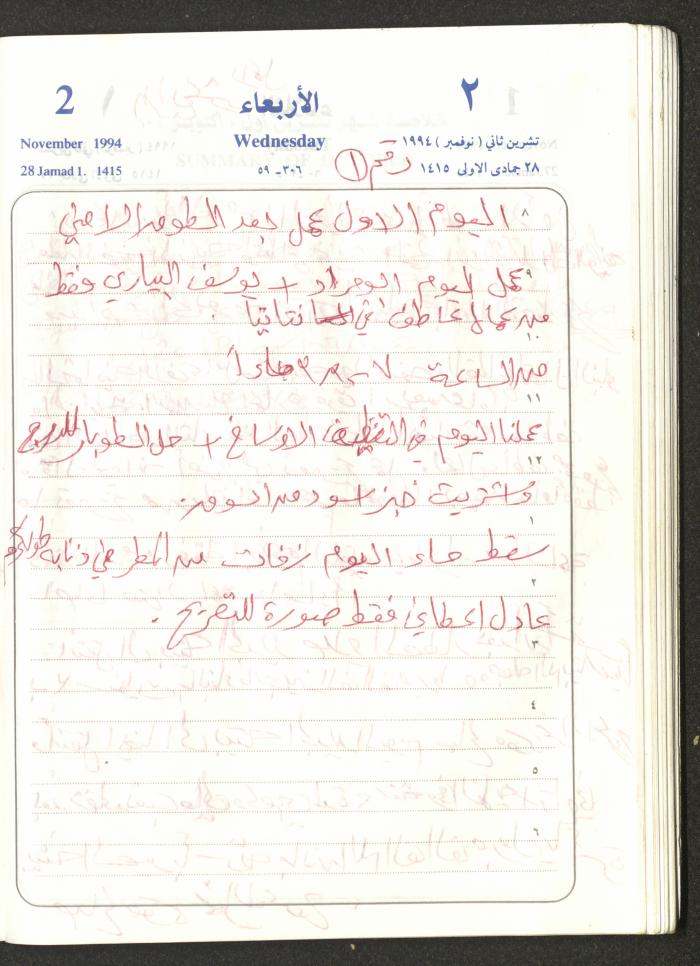 2 الأربعاء ٢
November 1994 Wednesday تشرين ثاني ( نوفمبر ) ١٩٩٤
28 Jamad 1. 1415 ٥٩ - ٣٠٦ ٢٨ جمادى الاولى ١٤١٥
رقم ١
٨ اليوم الاول عمل بعد الطوم الامني
٩ عمل اليوم ابو مراد + يوسف البياري فقط
من عمال عاطف في نتانيا .
١٠
من الساعة ٧ - ٣
١١
عملنا اليوم في التنظيف الاوساخ + حل الطوبار للدرج
١٢
واشتريت خبز اسود من السوبر .
١
سقط مساء اليوم زخات من المطر في ذنابه طولكرم
٢
عادل اعطاني فقط صورة للتصريح .
٣
٤
٥
٦